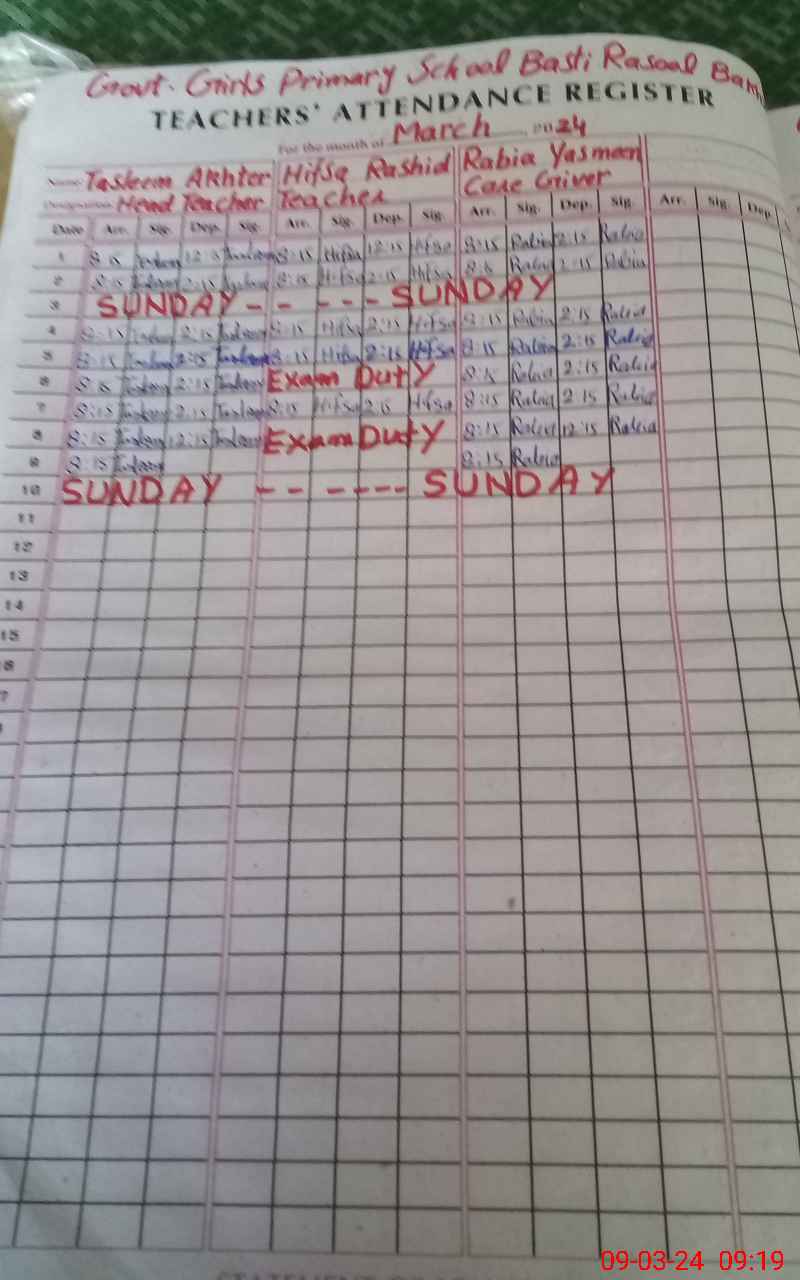 Govt. Girls Primary School Basti Rasool Bam
TEACHERS' ATTENDANCE REGISTER
For the month of March 2024
Name Tasleem Akhter Hifsa Rashid Rabia Yasmeen
Designation Head Teacher Teacher Care Giver
Date Arr. Sig. Dep. Sig. Arr. Sig. Dep. Sig. Arr. Sig. Dep. Sig. Arr. Sig. Dep.
1 8:15 12:15 8:15 Hifsa 12:15 Hifsa 8:15 Rabia 12:15 Rabia
2 8:15 2:15 8:15 Hifsa 2:15 Hifsa 8:15 Rabia 2:15 Rabia
3 SUNDAY - - - - - SUNDAY
4 8:15 2:15 8:15 Hifsa 2:15 Hifsa 8:15 Rabia 2:15 Rabia
5 8:15 2:15 8:15 Hifsa 2:15 Hifsa 8:15 Rabia 2:15 Rabia
6 8:15 2:15 Exam Duty 8:15 Rabia 2:15 Rabia
7 8:15 2:15 8:15 Hifsa 2:15 Hifsa 8:15 Rabia 2:15 Rabia
8 8:15 12:15 Exam Duty 8:15 Rabia 12:15 Rabia
9 8:15 8:15 Rabia
10 SUNDAY - - - - - - SUNDAY
11
12
13
14
15
6
7
09-03-24 09:19